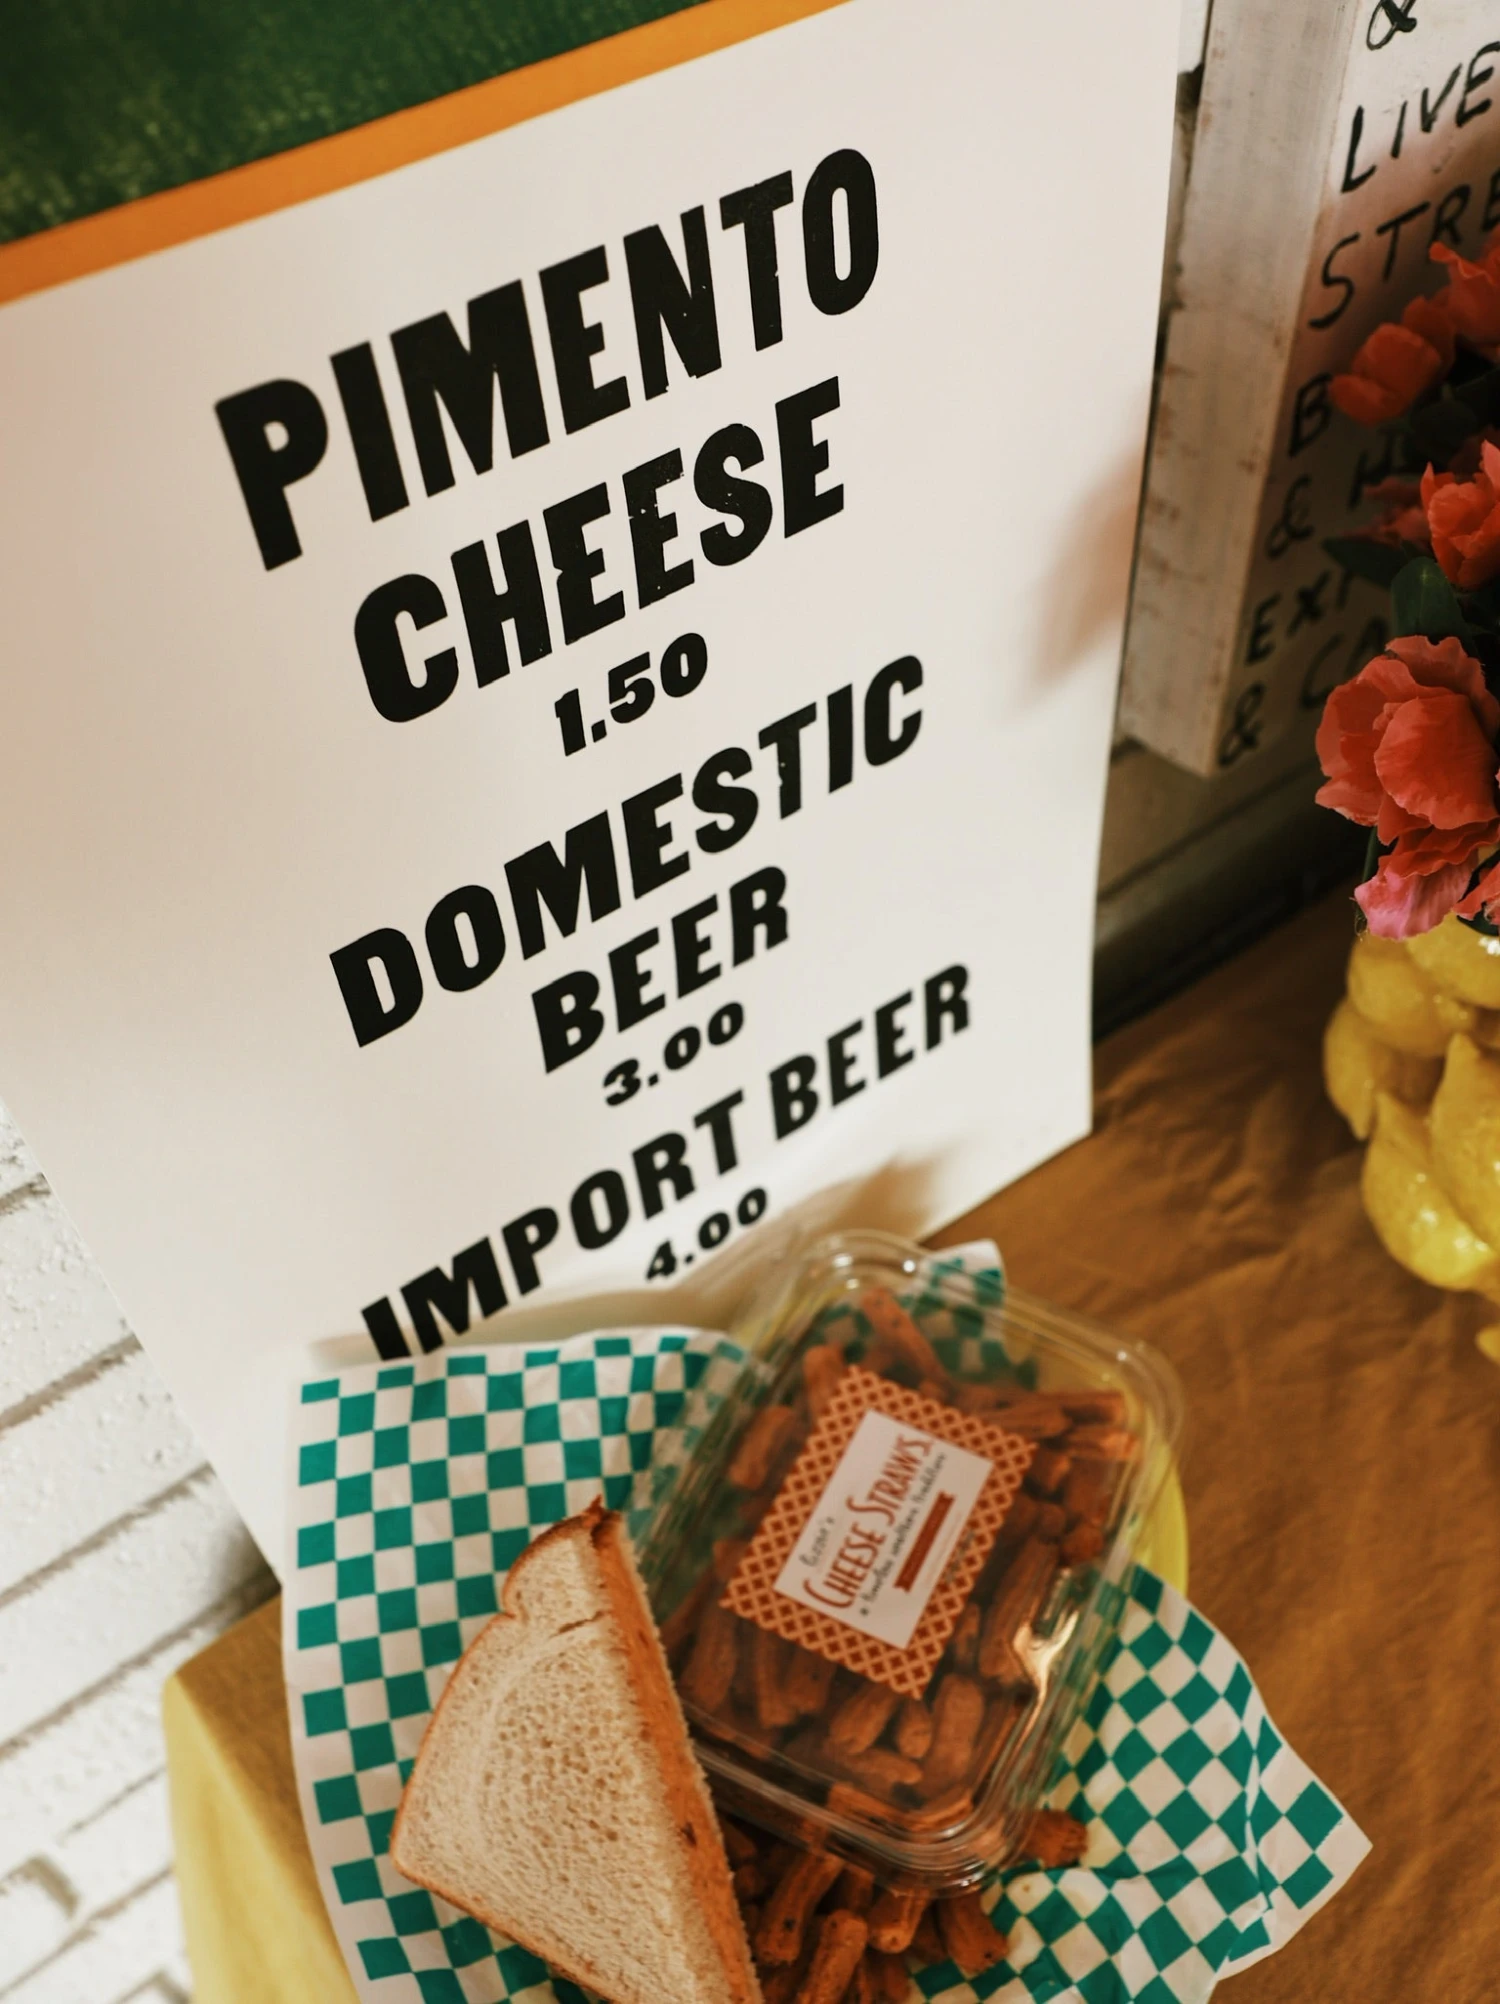 PIMENTO
CHEESE
1.50
DOMESTIC
BEER
3.00
IMPORT BEER
4.00
CHEESE STRAWS
a timeless southern tradition
&
LIVE
STRE
B
& H
EX
& CA